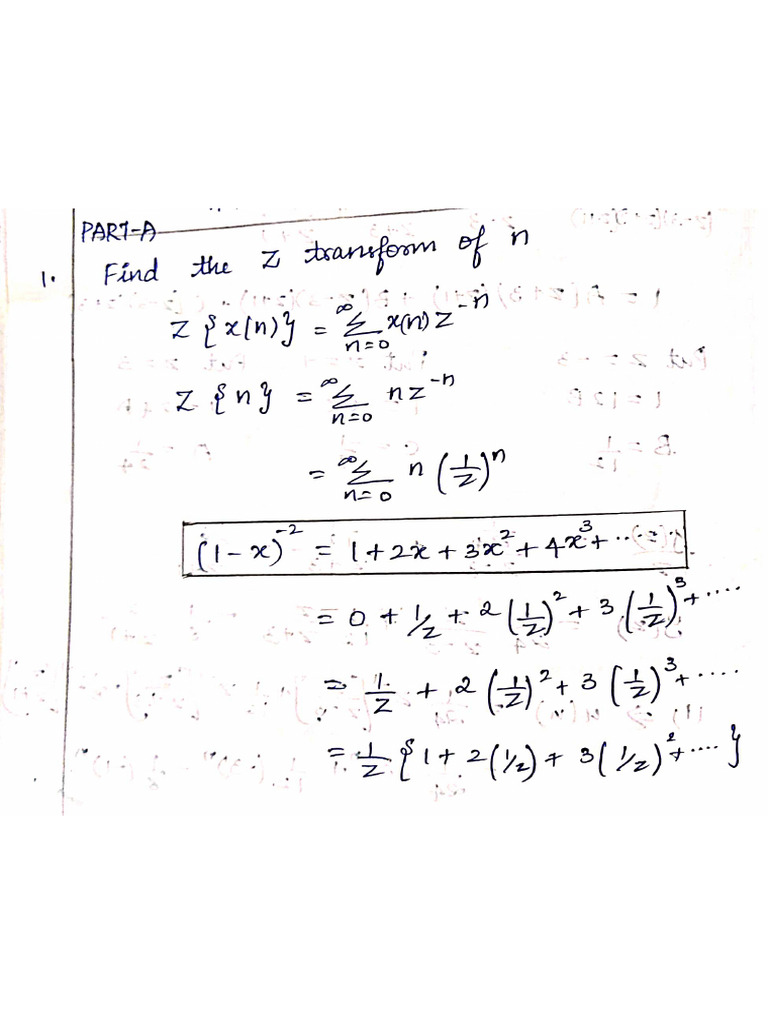 PART-A
1. Find the Z transform of n
Z {x(n)} = ∞Σn=0 x(n) z⁻ⁿ
Z {n} = ∞Σn=0 n z⁻ⁿ
= ∞Σn=0 n (1/z)ⁿ
(1-x)⁻² = 1+2x+3x²+4x³+....
= 0 + 1/z + 2(1/z)² + 3(1/z)³+....
= 1/z + 2(1/z)² + 3(1/z)³+....
= 1/z {1+2(1/z)+3(1/z)²+....}